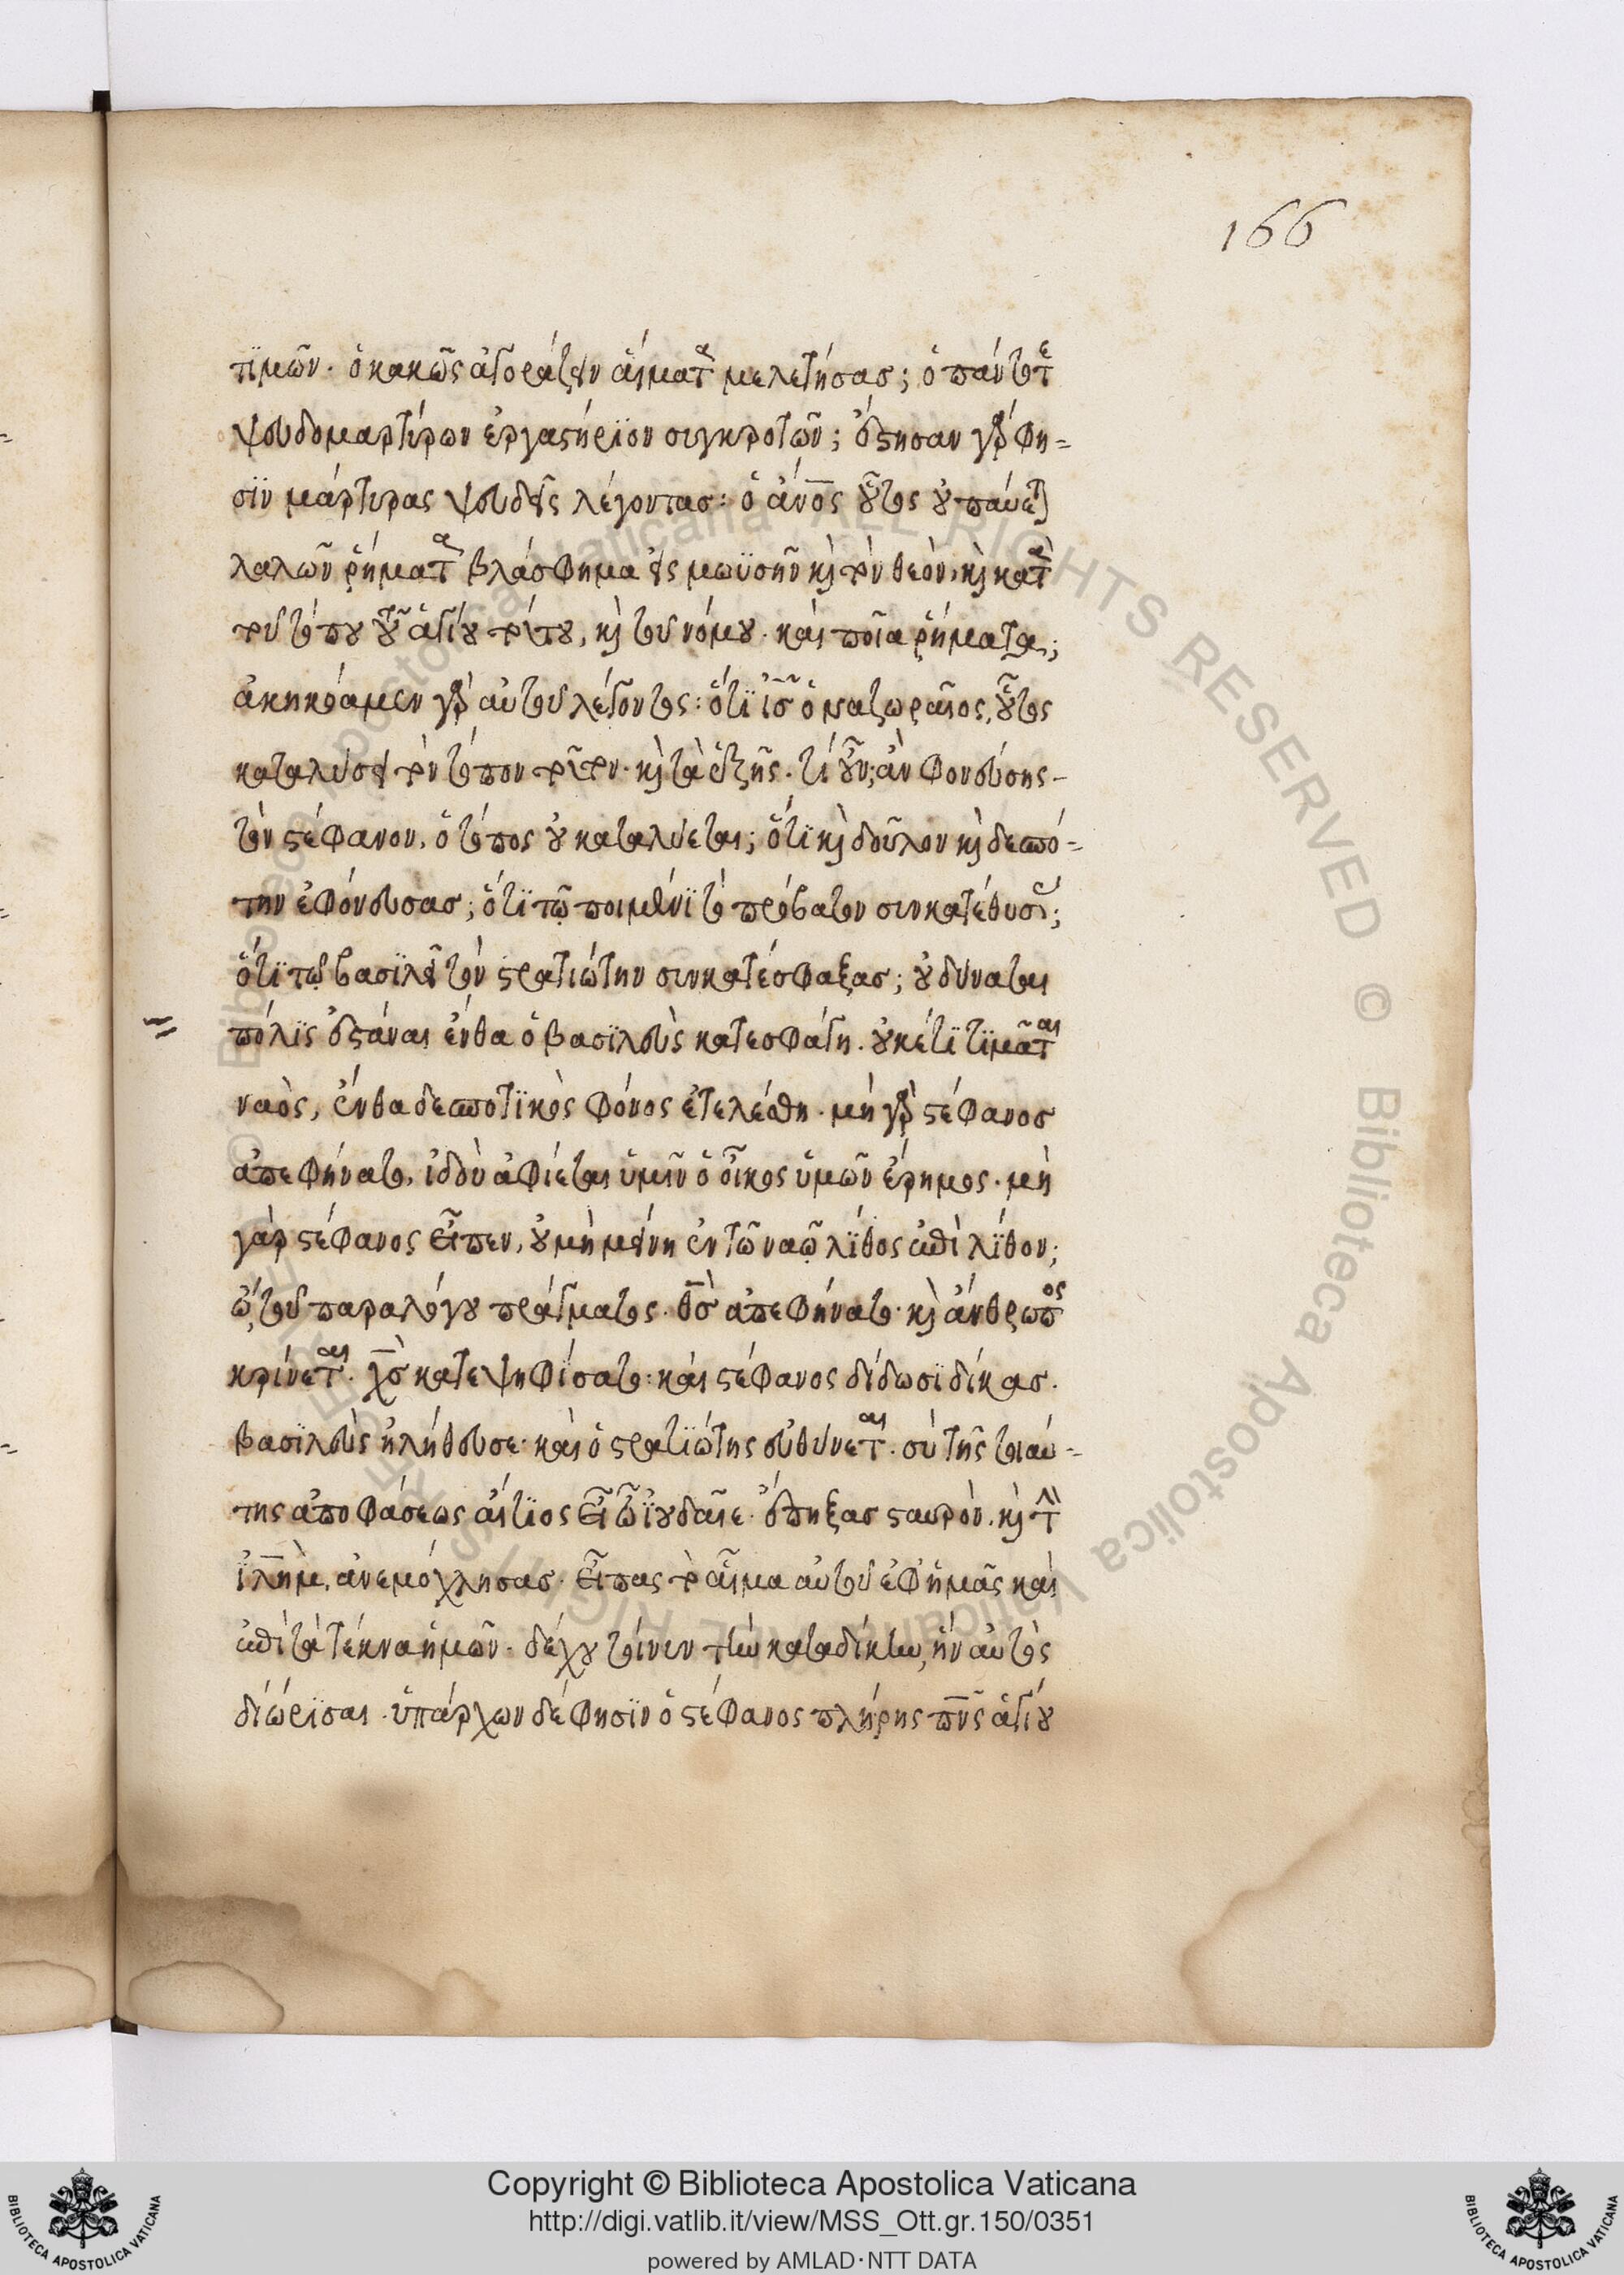 166
τϊμῶν. ὁ κακῶς ἀγοράζειν αἵματα μελετήσας; ὁ πάντοτε
ψευδομαρτύρων ἐργαστήρϊον συγκροτῶν; ἔστησαν γάρ φη-
σϊν μάρτυρας ψευδεῖς λέγοντας: ὁ ἄνος οὗτος οὐ παύεται
λαλῶν ῥήματα βλάσφημα εἰς μωϋσῆν καὶ τὸν θεὸν, καὶ κατὰ
τοῦ τόπου τοῦ ἁγίου τούτου, καὶ τοῦ νόμου. καὶ ποῖα ῥήματα;
ἀκηκόαμεν γὰρ αὐτοῦ λέγοντος: ὅτϊ ἰς ὁ ναζωραῖος, οὗτος
καταλύσει τὸν τόπον τοῦτον. καὶ τὰ ἑξῆς. τί οὖν; ἂν φονεύσης
τὸν στέφανον, ὁ τόπος οὐ καταλύεται; ὅτϊ καὶ δοῦλον καὶ δεσπό-
την ἐφόνευσας; ὅτϊ τῷ ποιμένϊ τὸ πρόβατον συνκατέθυσας;
ὅτϊ τῷ βασϊλεῖ τὸν στρατιώτην συνκατέσφαξας; οὐ δύναται
πόλϊς ἑστάναι ἔνθα ὁ βασϊλεὺς κατεσφάγη. οὐκέτϊ τϊμᾶται
ναὸς, ἔνθα δεσποτϊκὸς φόνος ἐτελέσθη. μὴ γὰρ στέφανος
ἀπεφήνατο, ἰδοὺ ἀφίεται ὑμῖν ὁ οἶκος ὑμῶν ἔρημος. μὴ
γὰρ στέφανος εἶπεν, οὐ μὴ μείνη ἐν τῶ ναῷ λϊθος ἐπὶ λϊθον;
ὢ τοῦ παραλόγου πράγματος. θς ἀπεφήνατο. καὶ ἄνθρωπος
κρίνεται. χς κατεψηφίσατο: καὶ στέφανος δίδωσϊ δίκας.
βασϊλεὺς ἠλήθευσε. καὶ ὁ στρατϊώτης εὐθύνεται. σὺ τῆς τοιαύ-
της ἀποφάσεως αἴτϊος εἶ ὦ ἰουδαῖε. ἔπηξας σταυρὸν. καὶ τὴν
ἰλημ, ἀνεμόχλησας. εἶπας τὸ αἷμα αὐτοῦ ἐφ ἡμᾶς καὶ
ἐπὶ τὰ τέκνα ἡμῶν. δέχου τοίνυν τὴν καταδίκην, ἣν αὐτὸς
διώρϊσαι. ὑπάρχων δέ φησϊν ὁ στέφανος πλήρης πνς ἁγίου
© Biblioteca Apostolica Vaticana ALL RIGHTS RESERVED © Biblioteca Apostolica Vaticana ALL RIGHTS RESERVED
Copyright © Biblioteca Apostolica Vaticana
http://digi.vatlib.it/view/MSS_Ott.gr.150/0351
powered by AMLAD·NTT DATA
BIBLIOTECA APOSTOLICA VATICANA
BIBLIOTECA APOSTOLICA VATICANA